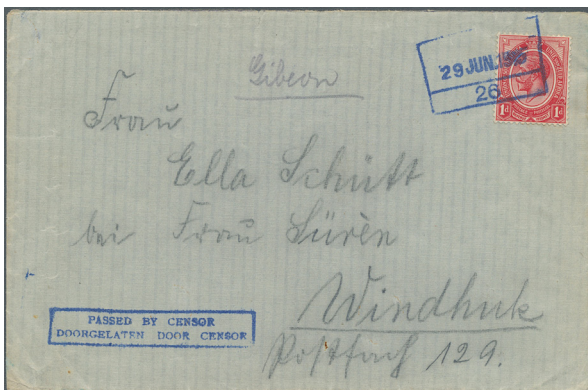 Gibeon
29 JUN.
26
1d 1d
Frau
Ella Schütt
bei Frau Sürèn
Windhuk
Postfach 129.
PASSED BY CENSOR
DOORGELATEN DOOR CENSOR